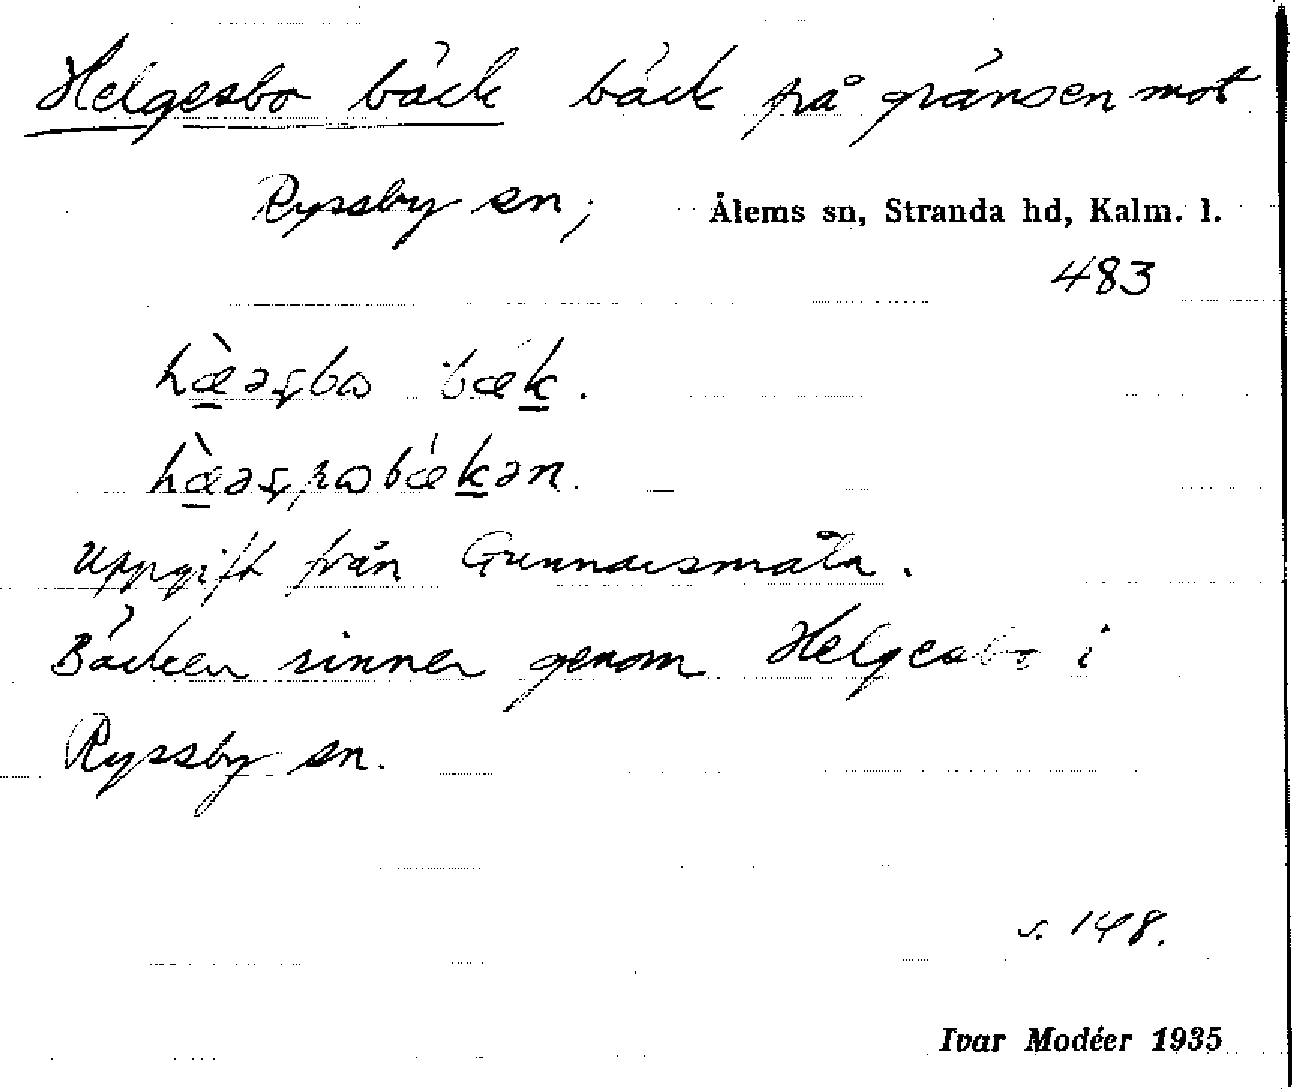 Helgesbo bäck bäck på gränsen mot
Ryssby sn; Ålems sn, Stranda hd, Kalm. l.
483
hæ̀əςbɷ bæk.
hæ̀əςpɷbækən.
Uppgift från Gunnarsmåla.
Bäcken rinner genom Helgesbo i
Ryssby sn.
s. 148.
Ivar Modéer 1935